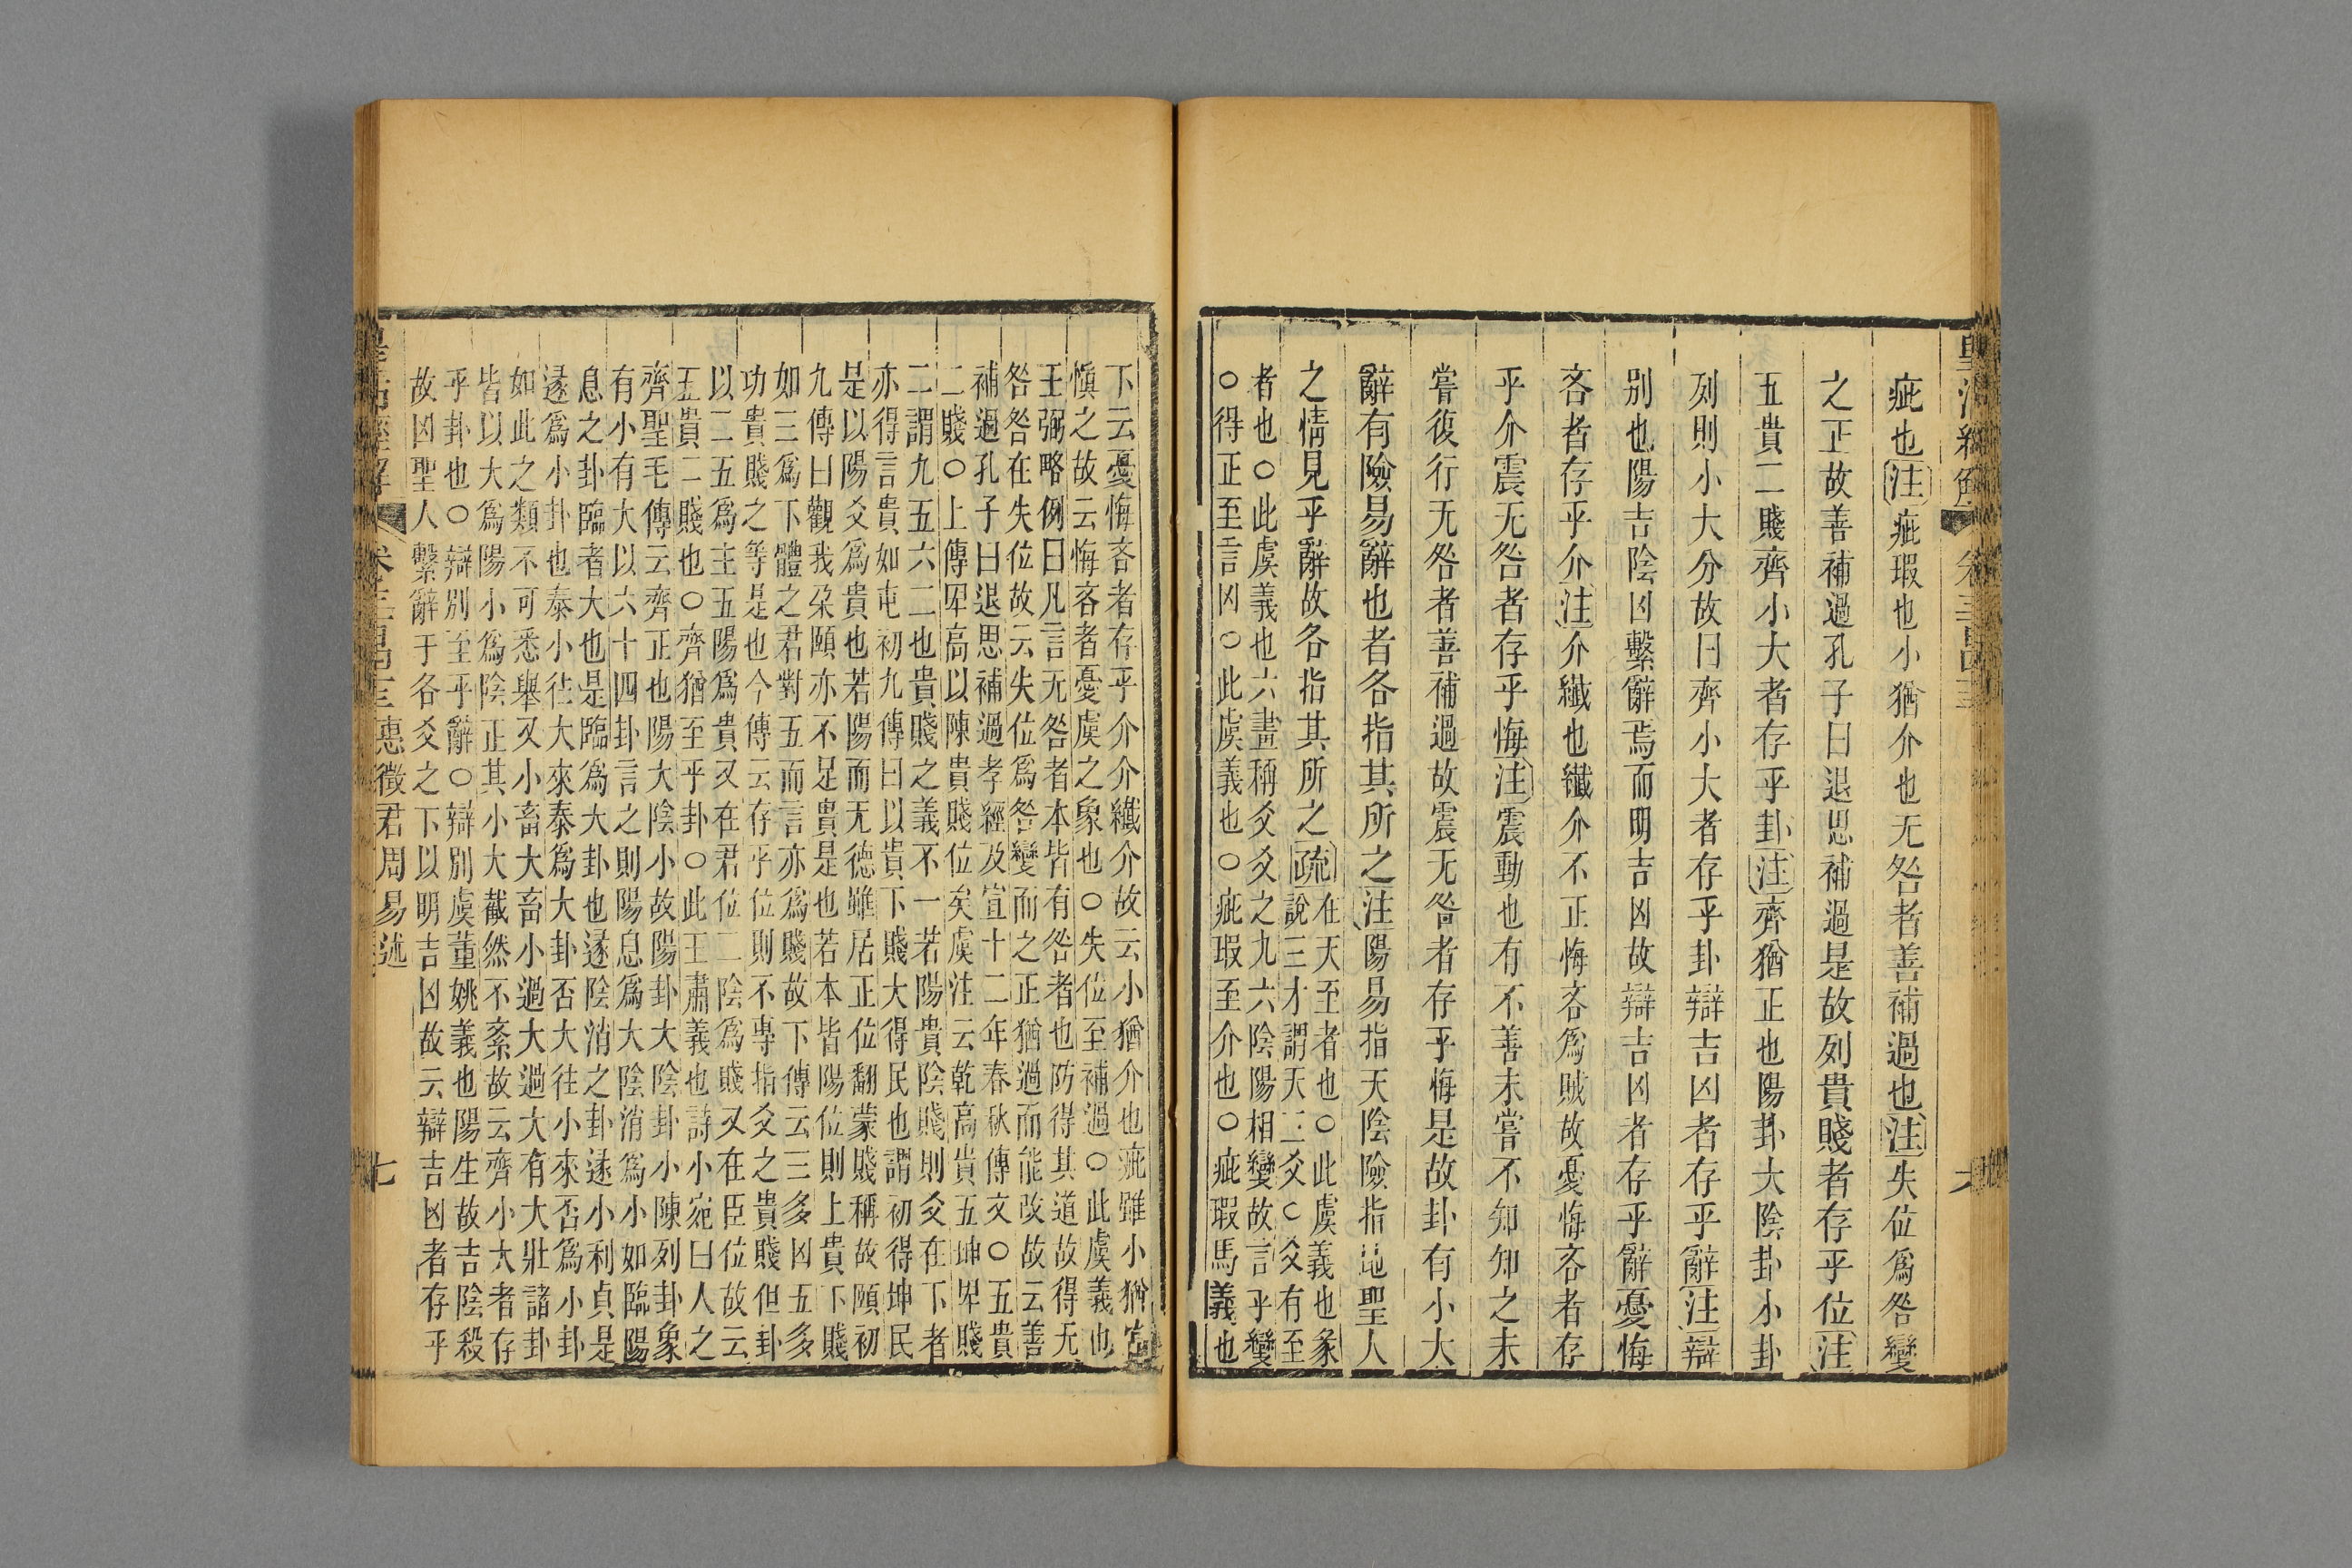 皇清經解
卷三百四十三
疵也注疵瑕也小猶介也无咎者善補過也注失位爲咎變
之正故善補過孔子曰退思補過是故列貴賤者存乎位注
五貴二賤齊小大者存乎卦注齊猶正也陽卦大陰卦小卦
列則小大分故曰齊小大者存乎卦辯吉凶者存乎辭注辯
別也陽吉陰凶繫辭焉而明吉凶故辯吉凶者存乎辭憂悔
吝者存乎介注介纖也纖介不正悔吝爲賊故憂悔吝者存
乎介震无咎者存乎悔注震動也有不善未嘗不知知之未
嘗復行无咎者善補過故震无咎者存乎悔是故卦有小大
辭有險易辭也者各指其所之注陽易指天陰險指地聖人
之情見乎辭故各指其所之疏
在天至者也○此虞義也彖
說三才謂天三爻○爻有至
者也○此虞義也六畫稱爻爻之九六陰陽相變故言乎變
○得正至言凶○此虞義也○疵瑕至介也○疵瑕馬義也
下云憂悔吝者存乎介介纖介故云小猶介也疵雖小猶宜
愼之故云悔吝者憂虞之象也○失位至補過○此虞義也
王弼略例曰凡言无咎者本皆有咎者也防得其道故得无
咎咎在失位故云失位爲咎變而之正猶過而能改故云善
補過孔子曰退思補過孝經及宣十二年春秋傳文○五貴
二賤○上傳卑高以陳貴賤位矣虞注云乾高貴五坤卑賤
二謂九五六二也貴賤之義不一若陽貴陰賤則爻在下者
亦得言貴如屯初九傳曰以貴下賤大得民也謂初得坤民
是以陽爻爲貴也若陽而无德雖居正位翻蒙賤稱故頤初
九傳曰觀我朶頤亦不足貴是也若本皆陽位則上貴下賤
如三爲下體之君對五而言亦爲賤故下傳云三多凶五多
功貴賤之等是也今傳云存乎位則不專指爻之貴賤但卦
以二五爲主五陽爲貴又在君位二陰爲賤又在臣位故云
五貴二賤也○齊猶至乎卦○此王肅義也詩小宛曰人之
齊聖毛傳云齊正也陽大陰小故陽卦大陰卦小陳列卦象
有小有大以六十四卦言之則陽息爲大陰消爲小如臨陽
息之卦臨者大也是臨爲大卦也遂陰消之卦遂小利貞是
遂爲小卦也泰小往大來泰爲大卦否大往小來否爲小卦
如此之類不可悉舉又小畜大畜小過大過大有大壯諸卦
皆以大爲陽小爲陰正其小大截然不紊故云齊小大者存
乎卦也○辯別至乎辭○辯別虞董姚義也陽生故吉陰殺
故凶聖人繫辭于各爻之下以明吉凶故云辯吉凶者存乎
皇清經解
卷三百四十三
惠徵君周易述
七